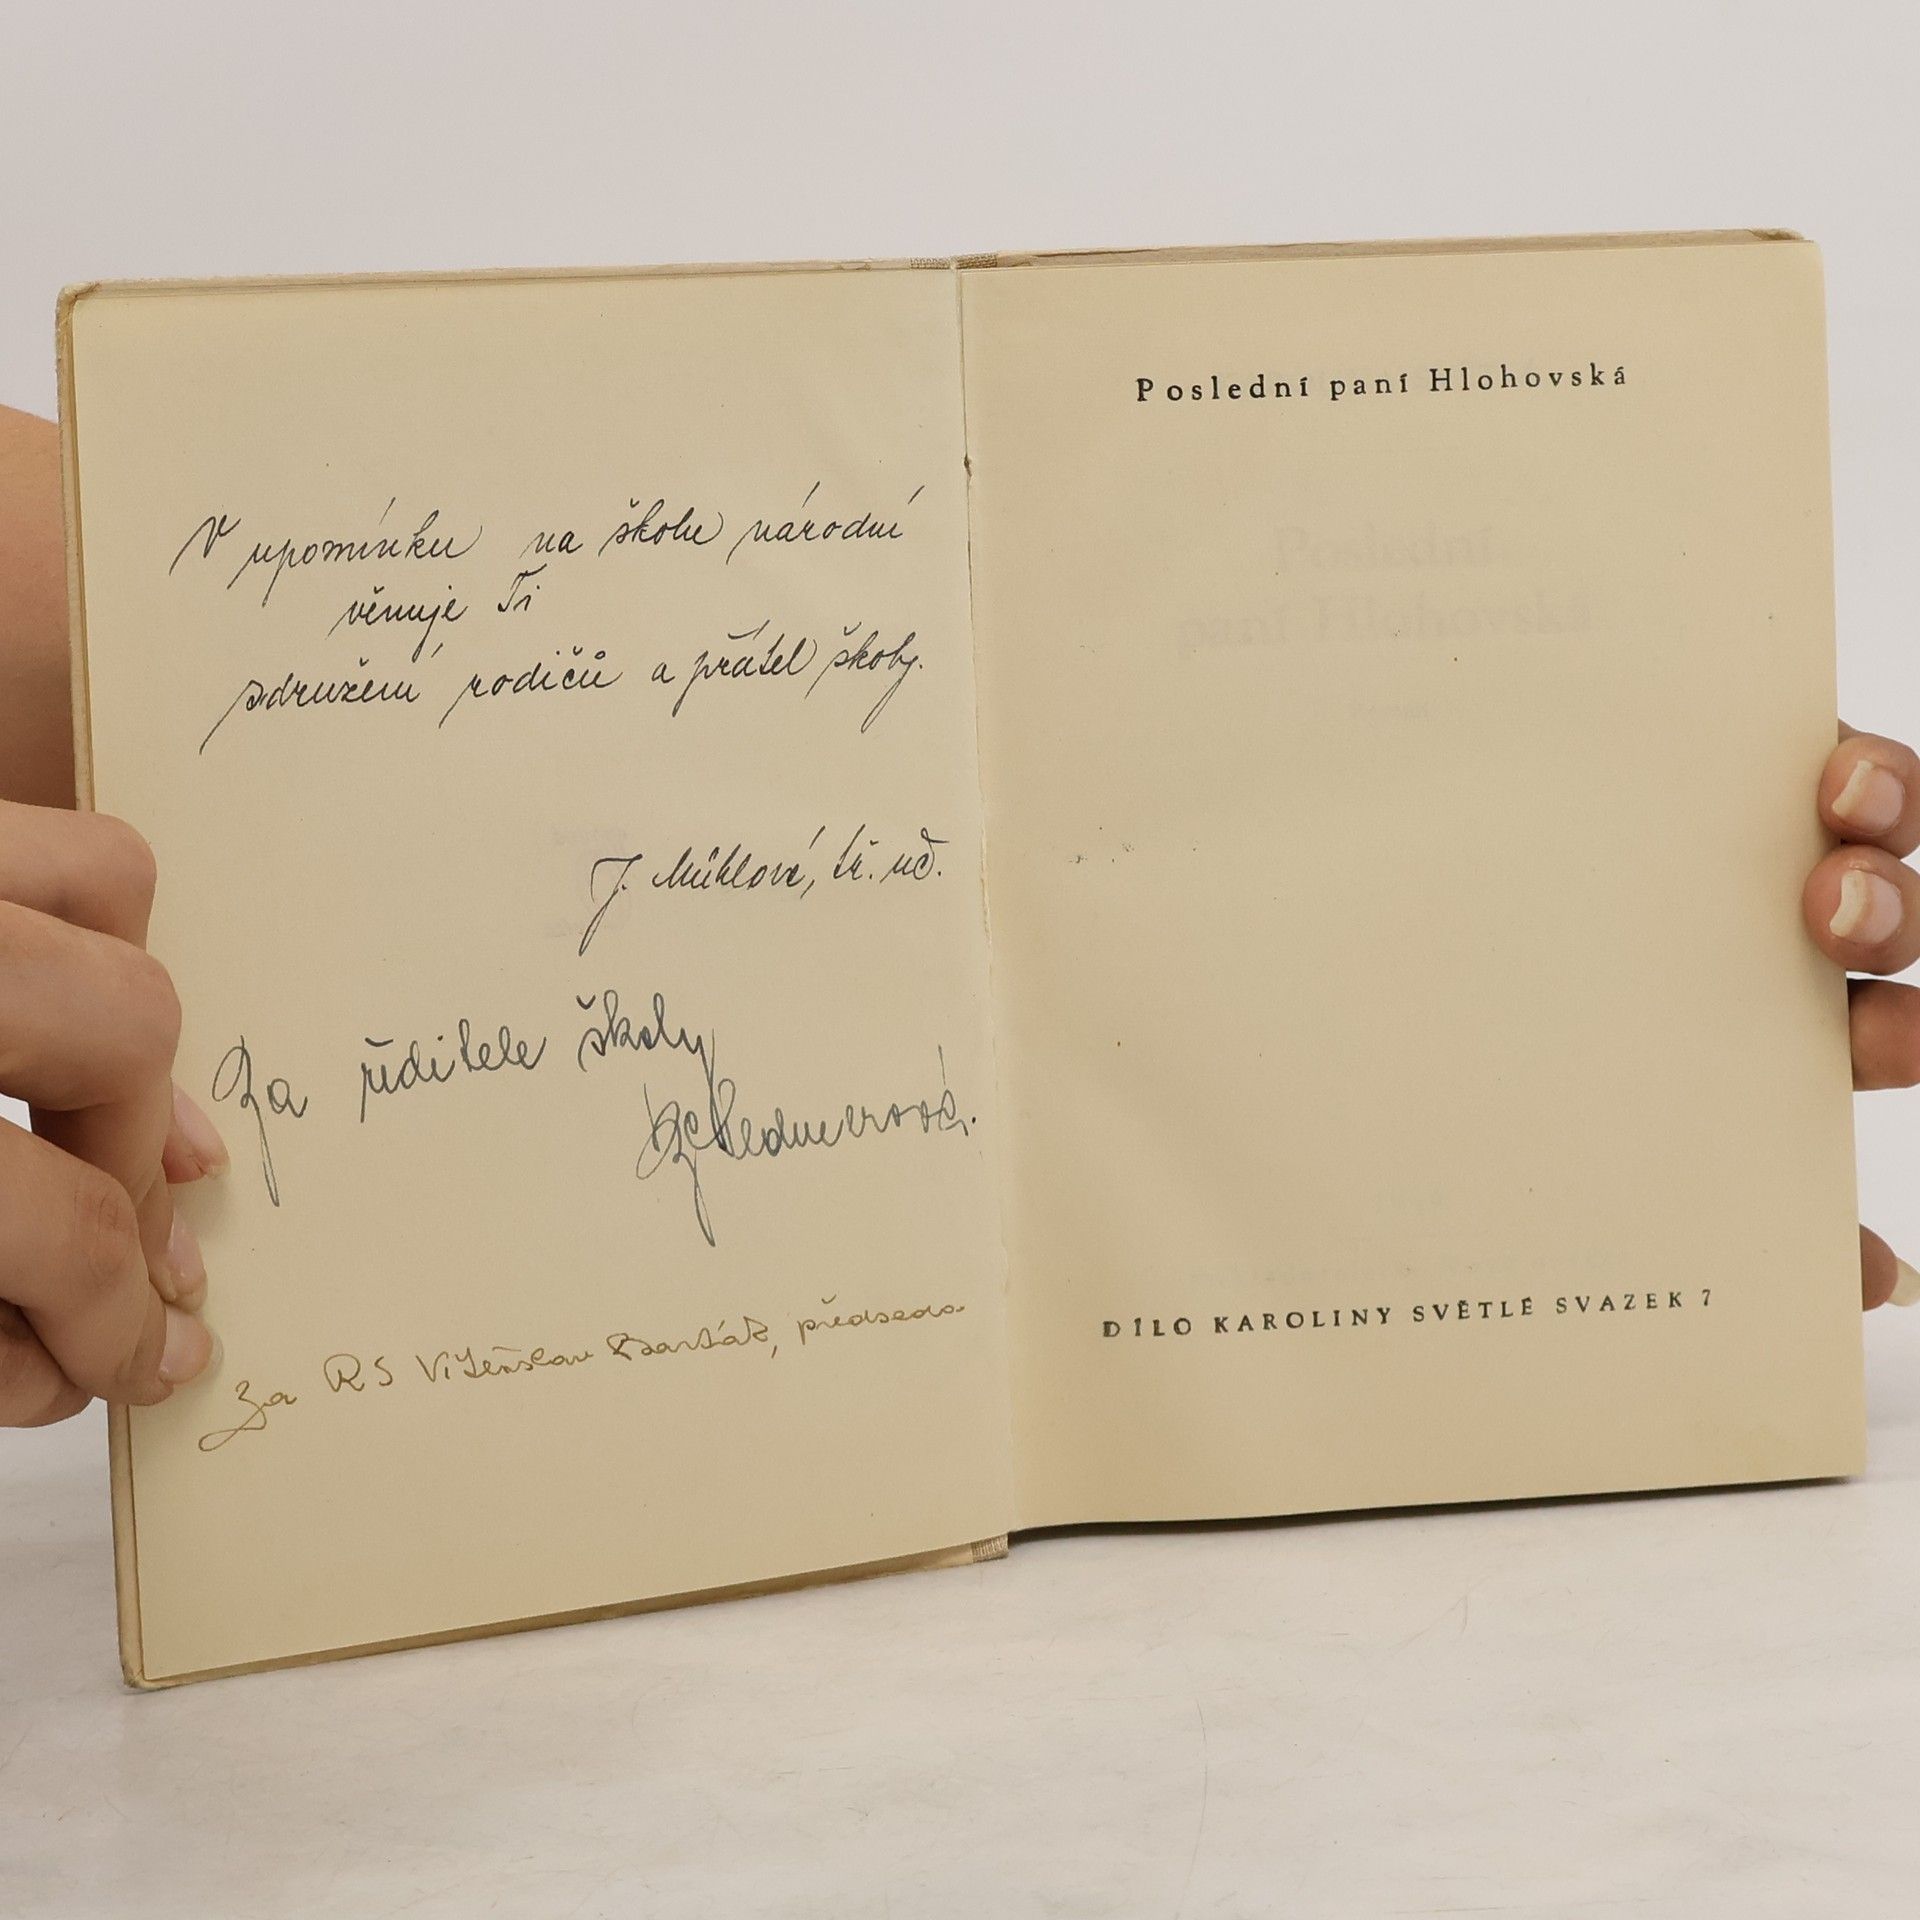 V upomínku na školu národní
věnuje Ti
sdružení rodičů a přátel školy.
J. Mühlová, tř. uč.
Za ředitele školy
Za RS Vítězslav Barták, předseda
Poslední paní Hlohovská
Poslední
paní Hlohovská
DÍLO KAROLINY SVĚTLÉ SVAZEK 7